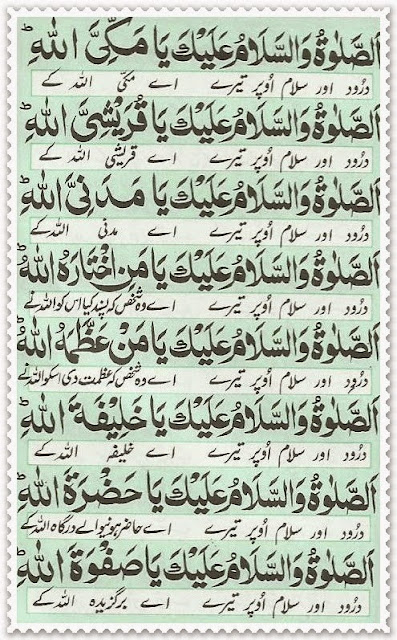 اَلصَّلٰوةُ وَالسَّلَامُ عَلَيْكَ يَا مَكِّىَّ اللهِ ؕ
درُود اور سلام اُوپر تیرے اے مکیّ اللہ کے
اَلصَّلٰوةُ وَالسَّلَامُ عَلَيْكَ يَا قُرَيْشِىَّ اللهِ ؕ
درُود اور سلام اُوپر تیرے اے قریشی اللہ کے
اَلصَّلٰوةُ وَالسَّلَامُ عَلَيْكَ يَا مَدَنِىَّ اللهِ ؕ
درُود اور سلام اُوپر تیرے اے مدنی اللہ کے
اَلصَّلٰوةُ وَالسَّلَامُ عَلَيْكَ يَا مَنِ اخْتَارَهُ اللهُ ؕ
درُود اور سلام اُوپر تیرے اے وہ شخص کہ پسند کیا اس کو اللہ نے
اَلصَّلٰوةُ وَالسَّلَامُ عَلَيْكَ يَا مَنْ عَظَّمَهُ اللهُ ؕ
درُود اور سلام اُوپر تیرے اے وہ شخص کہ عظمت دی اسکو اللہ نے
اَلصَّلٰوةُ وَالسَّلَامُ عَلَيْكَ يَا خَلِيْفَةَ اللهِ ؕ
درُود اور سلام اُوپر تیرے اے خلیفہ اللہ کے
اَلصَّلٰوةُ وَالسَّلَامُ عَلَيْكَ يَا حَضْرَةَ اللهِ ؕ
درُود اور سلام اُوپر تیرے اے حاضر ہونیوالے درگاہ اللہ کے
اَلصَّلٰوةُ وَالسَّلَامُ عَلَيْكَ يَا صَفْوَةَ اللهِ ؕ
درُود اور سلام اُوپر تیرے اے برگزیدہ اللہ کے